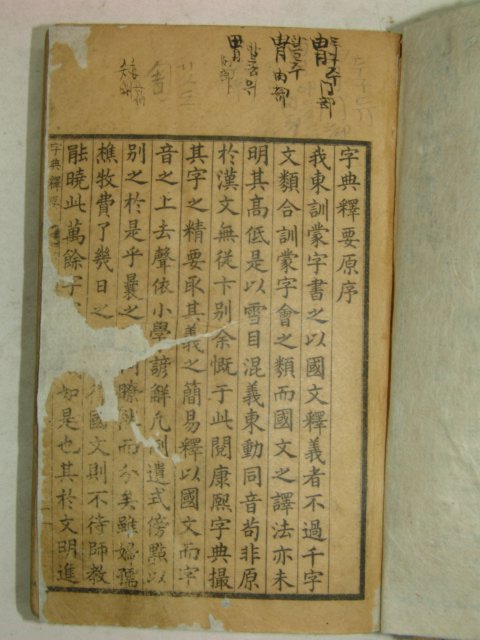 冑 투구주 冂部
冑 맏아들주 肉部
胃 밥통위 肉部
字典釋要原序
我東訓蒙字書之以國文釋義者不過千字
文類合訓蒙字會之類而國文之譯法亦未
明其高低是以雪目混義東動同音苟非原
於漢文無従卞别余慨于此閱康熙字典撮
其字之精要取其義之簡易釋以國文而字
音之上去聲依小學諺解凡例遺式傍點以
别之於是乎曩之 瞭然而今矣雖婦孺
樵牧費了幾日之 後國文則不待師教
能曉此萬餘字 如是也其於文明進
字典釋要